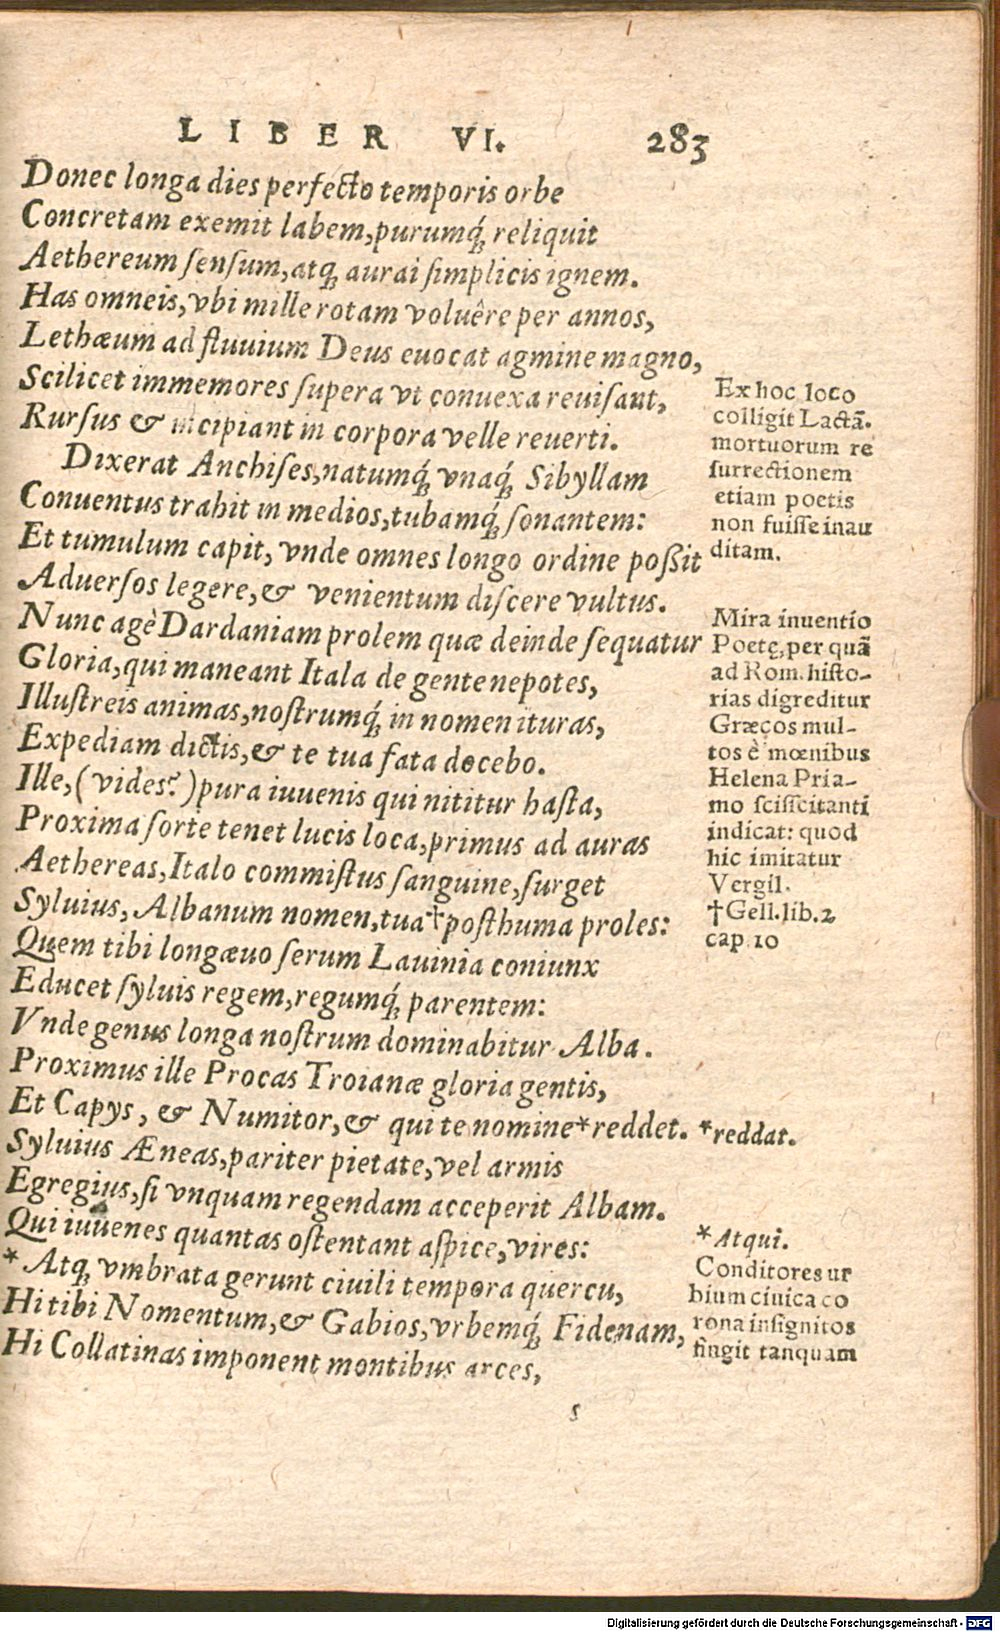 LIBER VI. 283
Donec longa dies perfecto temporis orbe
Concretam exemit labem, purumq́; reliquit
Aethereum ſenſum, atq; aurai ſimplicis ignem.
Has omneis, vbi mille rotam voluêre per annos,
Lethæum ad fluuium Deus euocat agmine magno,
Scilicet immemores ſupera vt conuexa reuiſant,
Rurſus & incipiant in corpora velle reuerti.
Dixerat Anchiſes, natumq́; vnaq́; Sibyllam
Conuentus trahit in medios, tubamq́; ſonantem:
Et tumulum capit, vnde omnes longo ordine poßit
Aduerſos legere, & venientum diſcere vultus.
Nunc agè Dardaniam prolem quæ deinde ſequatur
Gloria, qui maneant Itala de gente nepotes,
Illuſtreis animas, noſtrumq́; in nomen ituras,
Expediam dictis, & te tua fata docebo.
Ille, (vides?) pura iuuenis qui nititur haſta,
Proxima ſorte tenet lucis loca, primus ad auras
Aethereas, Italo commiſtus ſanguine, ſurget
Syluius, Albanum nomen, tua †poſthuma proles:
Quem tibi longæuo ſerum Lauinia coniunx
Educet ſyluis regem, regumq́; parentem:
Vnde genus longa noſtrum dominabitur Alba.
Proximus ille Procas Troianæ gloria gentis,
Et Capys, & Numitor, & qui te nomine *reddet.
Syluius Æneas, pariter pietate, vel armis
Egregius, ſi vnquam regendam acceperit Albam.
Qui iuuenes quantas oſtentant aſpice, vires:
* Atq; vmbrata gerunt ciuili tempora quercu,
Hi tibi Nomentum, & Gabios, vrbemq́; Fidenam,
Hi Collatinas imponent montibus arces,
s
Ex hoc loco
colligit Lactã.
mortuorum re
ſurrectionem
etiam poetis
non fuiſſe inau
ditam.
Mira inuentio
Poetę, per quã
ad Rom. hiſto-
rias digreditur
Græcos mul-
tos è mœnibus
Helena Pria-
mo ſciſſcitanti
indicat: quod
hic imitatur
Vergil.
†Gell. lib. 2
cap. 10
*reddat.
*Atqui.
Conditores ur
bium ciuica co
rona inſignitos
fingit tanquam
Digitalisierung gefördert durch die Deutsche Forschungsgemeinschaft - DFG